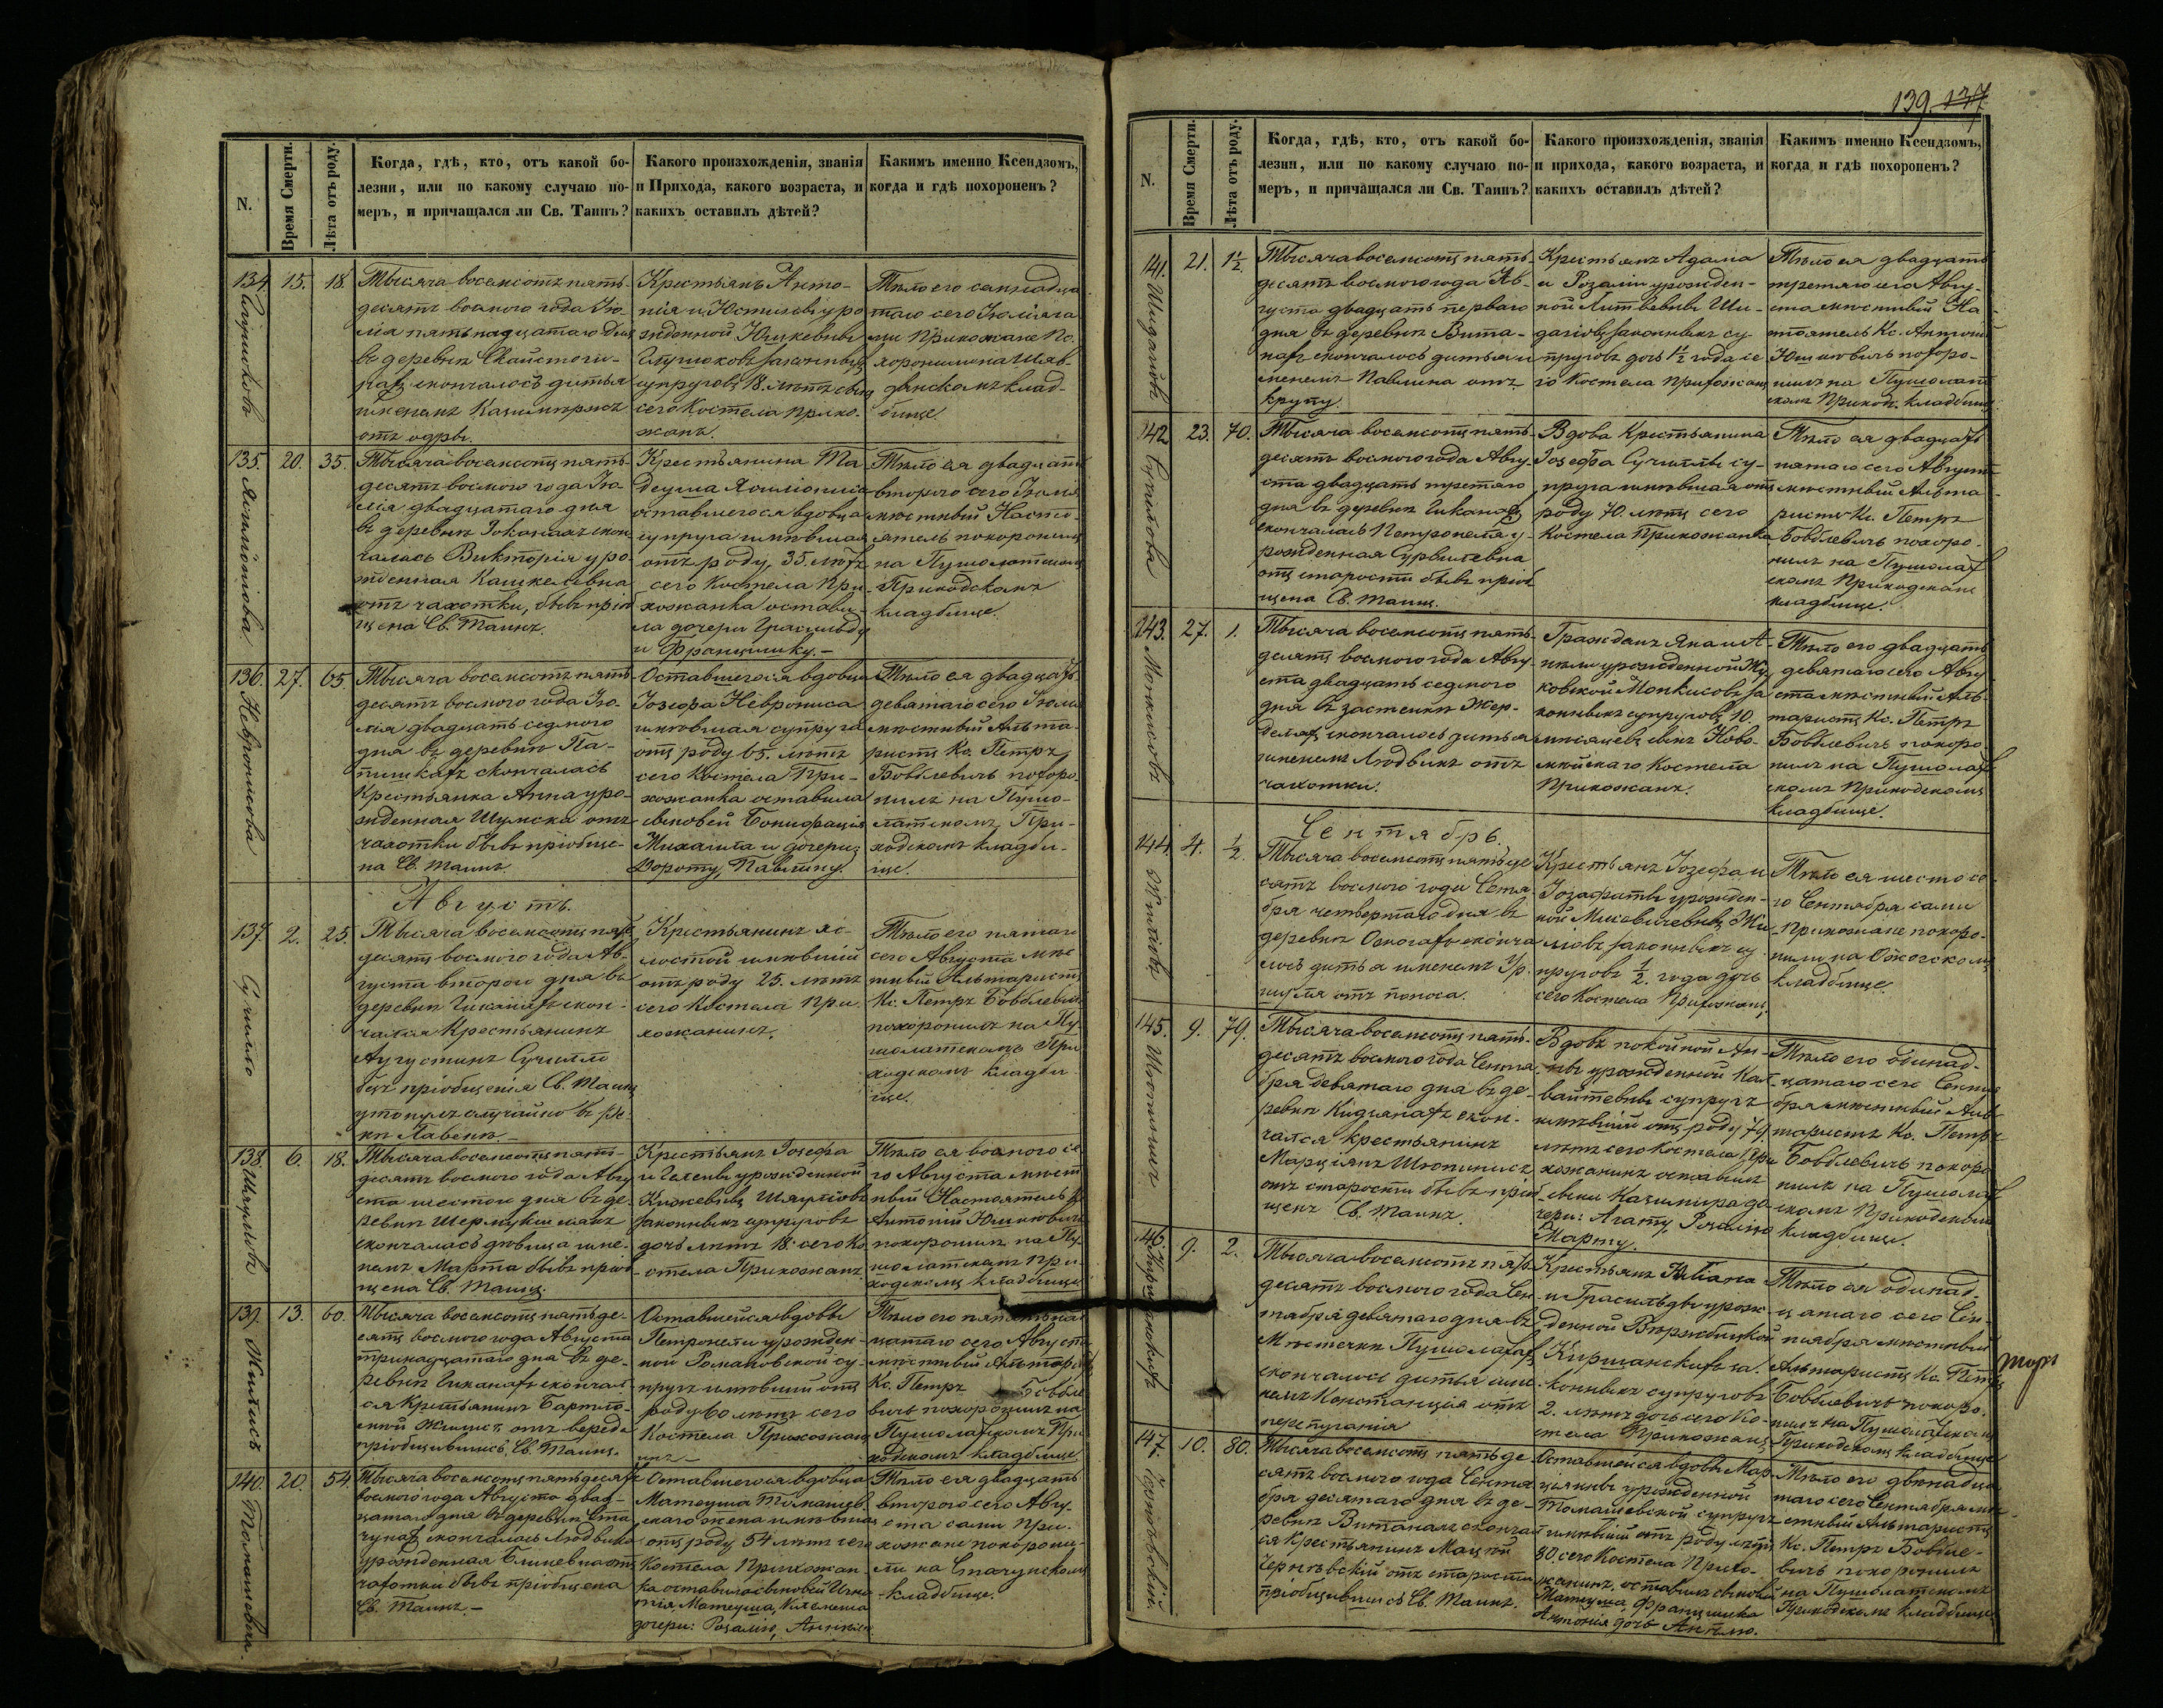 N.
Время Смерти.
Лѣта отъ роду.
Когда, гдѣ, кто, отъ какой бо-
лезни, или по какому случаю по-
меръ, и причащался ли Св. Таинъ?
Какого произхожденія, званія
и Прихода, какого возраста, и
какихъ оставилъ дѣтей?
Какимъ именно Ксендзомъ,
когда и гдѣ похороненъ?
134
15.
18.
Тысяча восемсотъ пять-
десятъ восмого года Ію-
лія пятьнадцатаго дня
въ деревнѣ
скончалось дитья
именемъ Казимиръ
отъ одры.
Крестьянъ Анто-
нія и Юстыны уро
жденной Юшкевны
законныхъ
супруговъ 18. лѣтъ сынъ
сего Костела прихо-
жанъ.
Тѣло его
таго сего Іюлія са
ми Прихожане По-
хоронили на Шав-
динскомъ клад-
бище.
135.
20.
35.
Тысяча восемсотъ пять
десятъ восмого года Ію
лія двадцатаго дня
въ деревнѣ скон
чалась Викторія уро
жденная
отъ чахотки, бывъ пріоб
щена Св. Таинъ.
Крестьянина Та
деуша
оставшегося вдовца
супруга имѣвшая
отъ роду 35. лѣтъ
сего Костела При-
хожанка остави-
ла дочери Грасильду
и Францишку. —
Тѣло ея двадцать
второго сего Іюлія
мѣстный Насто-
ятель похоронилъ
на Пушолатскомъ
Приходскомъ
кладбище.
136.
27.
65.
Невронисова
Тысяча восемсотъ пять
десятъ восмого года Ію-
лія двадцать седмого
дня въ деревнѣ Па-
скончалась
Крестьянка Анна уро-
жденная Шумска отъ
чахотки бывъ пріобще-
на Св. Таинъ.
Оставшегося вдовца
Іозефа Неврониса
имѣвшая супруга
отъ роду 65. лѣтъ
сего Костела При-
хожанка оставила
сыновей Бонифація
Михаила и дочерей
Дороту, Павлину.
Тѣло ея двадцать
девятаго сего Іюля
мѣстный Альта-
ристъ Кс. Петръ
Бовблевичъ похоро-
нилъ на Пушо-
латскомъ При-
ходскомъ кладби-
ще.
Августъ.
137.
2.
25.
Сучилло
Тысяча восемсотъ пять
десятъ восмого года Ав-
густа второго дня въ
деревнѣ Чиканахъ скон-
чался Крестьянинъ
Аугустинъ Сучилло
безъ пріобщенія Св. Таинъ
утонулъ случайно въ рѣ-
кѣ Лавенѣ. —
Крестьянинъ хо-
лостой имѣвшій
отъ роду 25. лѣтъ
сего Костела При
хожанинъ.
Тѣло его пятаго
сего Августа мѣс
тный Альтаристъ
Кс. Петръ Бовблевичъ
похоронилъ на Пу-
шолатскомъ При
ходскомъ кладби
ще.
138.
6.
18.
Тысяча восемсотъ пять-
десятъ восмого года Авгу
ста шестого дня въ де-
ревнѣ
скончалась дѣвица име-
немъ Марта бывъ пріоб
щена Св. Таинъ.
Крестьянъ Іозефа
и Елены урожденной
законныхъ супруговъ
дочь лѣтъ 18. сего Ко
стела Прихожанъ.
Тѣло ея восмого се
го Августа мѣст
ный Настоятель Кс.
Антоній Юшкевичъ
похоронилъ на Пу-
шолатскомъ При-
ходскомъ кладбище
139.
13.
60.
Жилисъ
Тысяча восемсотъ пятьде-
сятъ восмого года Августа
тринадцатаго дня въ де-
ревнѣ Чиканахъ скончал
ся Крестьянинъ Бартло-
мей Жилисъ отъ вереда
пріобщившись Св. Таинъ.
Оставшейся вдовы
Петронели урожден-
ной Романовской су-
пругъ имѣвшій отъ
роду 60 лѣтъ сего
Костела Прихожан
инъ —
Тѣло его пятьнад
цатаго сего Августа
мѣстный Альтаристъ
Кс. Петръ Бовбле
вичъ похоронилъ на
Пушолатскомъ При
ходскомъ кладбище
140.
20.
54.
Томашевича.
Тысяча восемсотъ пятьдесятъ
восмого года Августа двад-
цатаго дня въ деревнѣ Ста
чунахъ скончалась Людвика
урожденная отъ
чахотки бывъ пріобщена
Св. Таинъ. —
Оставшегося вдовца
Матеуша Томашев-
скаго жена имѣвшая
отъ роду 54 лѣтъ сего
Костела Прихожан-
ка оставила сыновей Игна
тія Матеуша,
дочери: Розалію,
Тѣло ея двадцать
второго сего Авгу-
ста сами При-
хожане похорони-
ли на Стачунскомъ
кладбище.
139. 137
N.
Время Смерти.
Лѣта отъ роду.
Когда, гдѣ, кто, отъ какой бо-
лезни, или по какому случаю по-
меръ, и причащался ли Св. Таинъ?
Какого произхожденія, званія
и прихода, какого возраста, и
какихъ оставилъ дѣтей?
Какимъ именно Ксендзомъ,
когда и гдѣ похороненъ?
141.
21.
1½.
Тысяча восемсотъ пять-
десятъ восмого года Ав-
густа двадцать перваго
дня въ деревнѣ Вита-
нахъ скончалось дитья и
менемъ Павлина отъ
крупу.
Крестьянъ Адама
и Розаліи урожден-
ной Литвевны
законныхъ су
пруговъ дочь 1½ года се
го Костела Прихожанъ
Тѣло ея двадцать
третяго сего Авгу-
ста мѣстный На-
стоятель Кс. Антоній
Юшкевичъ похоро-
нилъ на Пушолат
скомъ Приход. кладбищѣ
142.
23.
70.
Сучилова
Тысяча восемсотъ пять-
десятъ восмого года Авгу-
ста двадцать третяго
дня въ деревнѣ Чиканахъ
скончалась Петронеля у-
рожденная Сурвилевна
отъ старости бывъ пріоб
щена Св. Таинъ.
Вдова Крестьянина
Іозефа Сучиллы су-
пруга имѣвшая отъ
роду 70. лѣтъ сего
Костела Прихожанка
Тѣло ея двадцать
пятаго сего Августа
мѣстный Альта-
ристъ Кс. Петръ
Бовблевичъ похоро-
нилъ на Пушолат
скомъ Приходскомъ
кладбище.
143.
27.
1.
Тысяча восемсотъ пять-
десятъ восмого года Авгу-
ста двадцать седмого
дня въ застенкѣ Жер-
скончалось дитья
именемъ Людвикъ отъ
чахотки.
Гражданъ Яна и А-
нели урожденной Жу
ковской за
конныхъ супруговъ 10.
мѣсяцевъ сынъ Ново-
мѣйскаго Костела
Прихожанъ.
Тѣло его двадцать
девятаго сего Авгу
ста мѣстный Аль-
таристъ Кс. Петръ
Бовблевичъ похоро
нилъ на Пушолат
скомъ Приходскомъ
кладбище.
Сентябрь.
144.
4.
½.
Тысяча восемсотъ пятьде
сятъ восмого года Сентя
бря четвертаго дня въ
деревнѣ сконча
лось дитья именемъ Ур-
шуля отъ поноса.
Крестьянъ Іозефа и
Іозафаты урожден-
ной
законныхъ су
пруговъ ½. года дочь
сего Костела Прихожанъ.
Тѣло ея шестого се-
го Сентября сами
Прихожане похоро-
нили на
кладбище.
145.
9.
79.
Тысяча восемсотъ пять-
десятъ восмого года Сентя
бря девятаго дня въ де-
ревнѣ скон-
чался крестьянинъ
Марціянъ
отъ старости бывъ пріоб
щенъ Св. Таинъ.
Вдовъ покойной Ан-
ны урожденной
супругъ
имѣвшій отъ роду 79.
лѣтъ сего Костела При
хожанинъ оставилъ
сына Казимира до
чери: Агату, Розалію
Марту.
Тѣло его одинад-
цатаго сего Сентя
бря мѣстный Аль-
таристъ Кс. Петръ
Бовблевичъ похоро
нилъ на Пушолат
скомъ Приходскомъ
кладбище.
146.
9.
2.
Тысяча восемсотъ пять
десятъ восмого года Сен-
тября девятаго дня въ
Мѣстечкѣ Пушолатахъ
скончалось дитья име
немъ Констанція отъ
перепугания
Крестьянъ Юліана
и Грасильды урож-
денной Вержбицкой
Киршанскихъ за-
конныхъ супруговъ
2. лѣтъ дочь сего Ко-
стела Прихожанъ
Тѣло ея одинад-
цатаго сего Сен-
тября мѣстный
Альтаристъ Кс. Петръ
Бовблевичъ похоро-
нилъ на Пушолатскомъ
Приходскомъ кладбище
147.
10.
80.
Тысяча восемсотъ пятьде
сятъ восмого года Сентя
бря десятаго дня въ де-
ревнѣ Витанахъ скончал
ся Крестьянинъ Мацей
отъ старости
пріобщившись Св. Таинъ.
Оставшейся вдовы Мар-
ціянны урожденной
Томашевской супругъ
имѣвшій отъ роду лѣтъ
80. сего Костела Прихо-
жанинъ, оставилъ сыновей
Матеуша, Францишка
Антонія дочь Анелю.
Тѣло его двѣнадца
таго сего Сентября мѣ-
стный Альтаристъ
Кс. Петръ Бовбле-
вичъ похоронилъ
на Пушолатскомъ
Приходскомъ кладбище